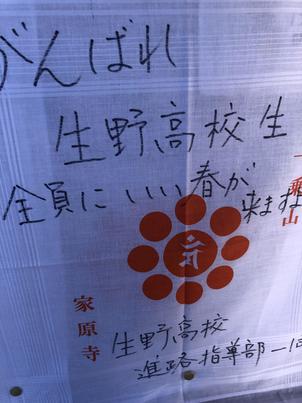 がんばれ
生野高校生
全員にいい春が
来ます
一乗山
家原寺
生野高校
進路指導部一同